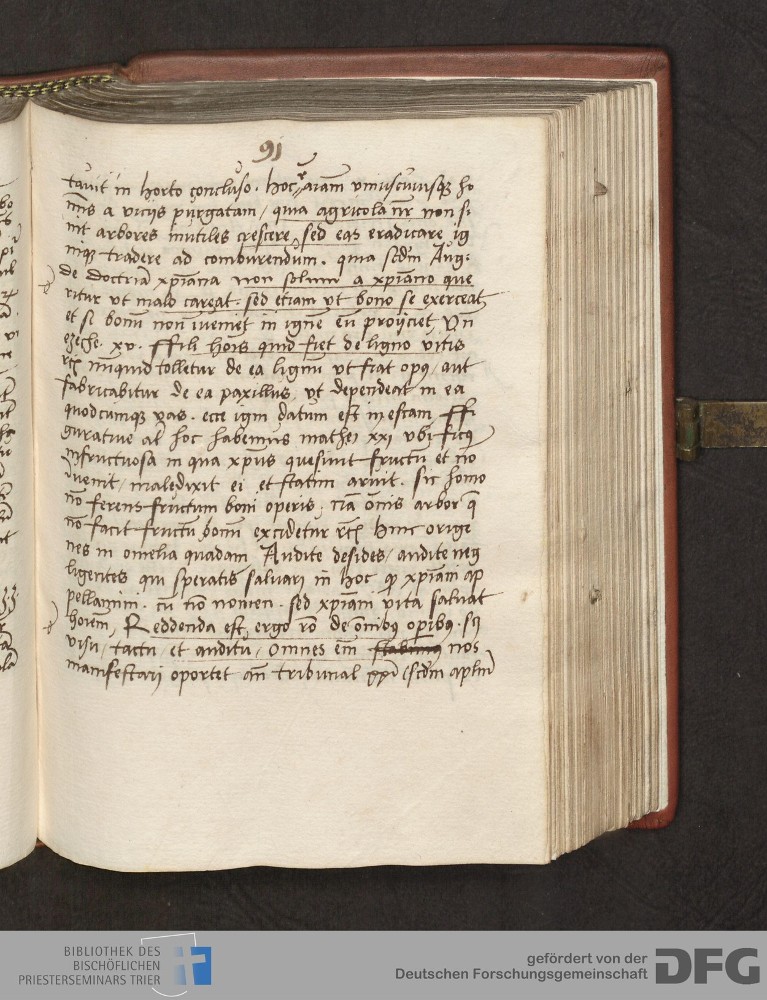 91
tavit in horto concluso. hoc ē aīam vniuscuiusqꝫ ho
mīs a vicijs purgatam / quia agricola nr̄ non si
nit arbores inutiles crescere, sed eas eradicare ig
niqꝫ tradere ad comburendum. quia scdm̄ Aug:
de doctrīa xp̄iana non solum a xp̄iano que
ritur vt malo careat. sed etiam vt bono se exerceat
et si bonū non īueniet in ignē eū proijciet, Vn̄
ezeche. xv. ffili hoīs quid fiet de ligno vitis
rc̄ nunquid tolletur de ea lignū vt fiat opꝯ / aut
fabricabitur de ea paxillus, vt dependeat in ea
quodcumqꝫ vas. ecce igni datum est in escam ffi
guratiue al̄ hoc habemus mathei xxi vbi ficꝯ
infructuosa in qua xp̄us quesiuit fructū et nō
īuenit / maledixit ei et statim aruit. sic homo
nō ferens fructum boni operis. nā oīnis arbor q̄
nō facit fructū bonū excidetur rc̄ hinc orige
nes in omelia quadam Audite desides / audite neg
ligentes qui speratis saluari in hoc ꝙ xp̄iani ap
pellamini. cū nō nomen. sed xp̄iani vita saluat
hoīem, Reddenda est ergo rō de oīnibꝯ operibꝯ. sꝫ
visu / tactu / et auditu / Omnes em̄ nos
manifestari oportet an̄ tribunal xp̄i (scdm̄ aplm̄
BIBLIOTHEK DES
BISCHÖFLICHEN
PRIESTERSEMINARS TRIER
gefördert von der
Deutschen Forschungsgemeinschaft
DFG